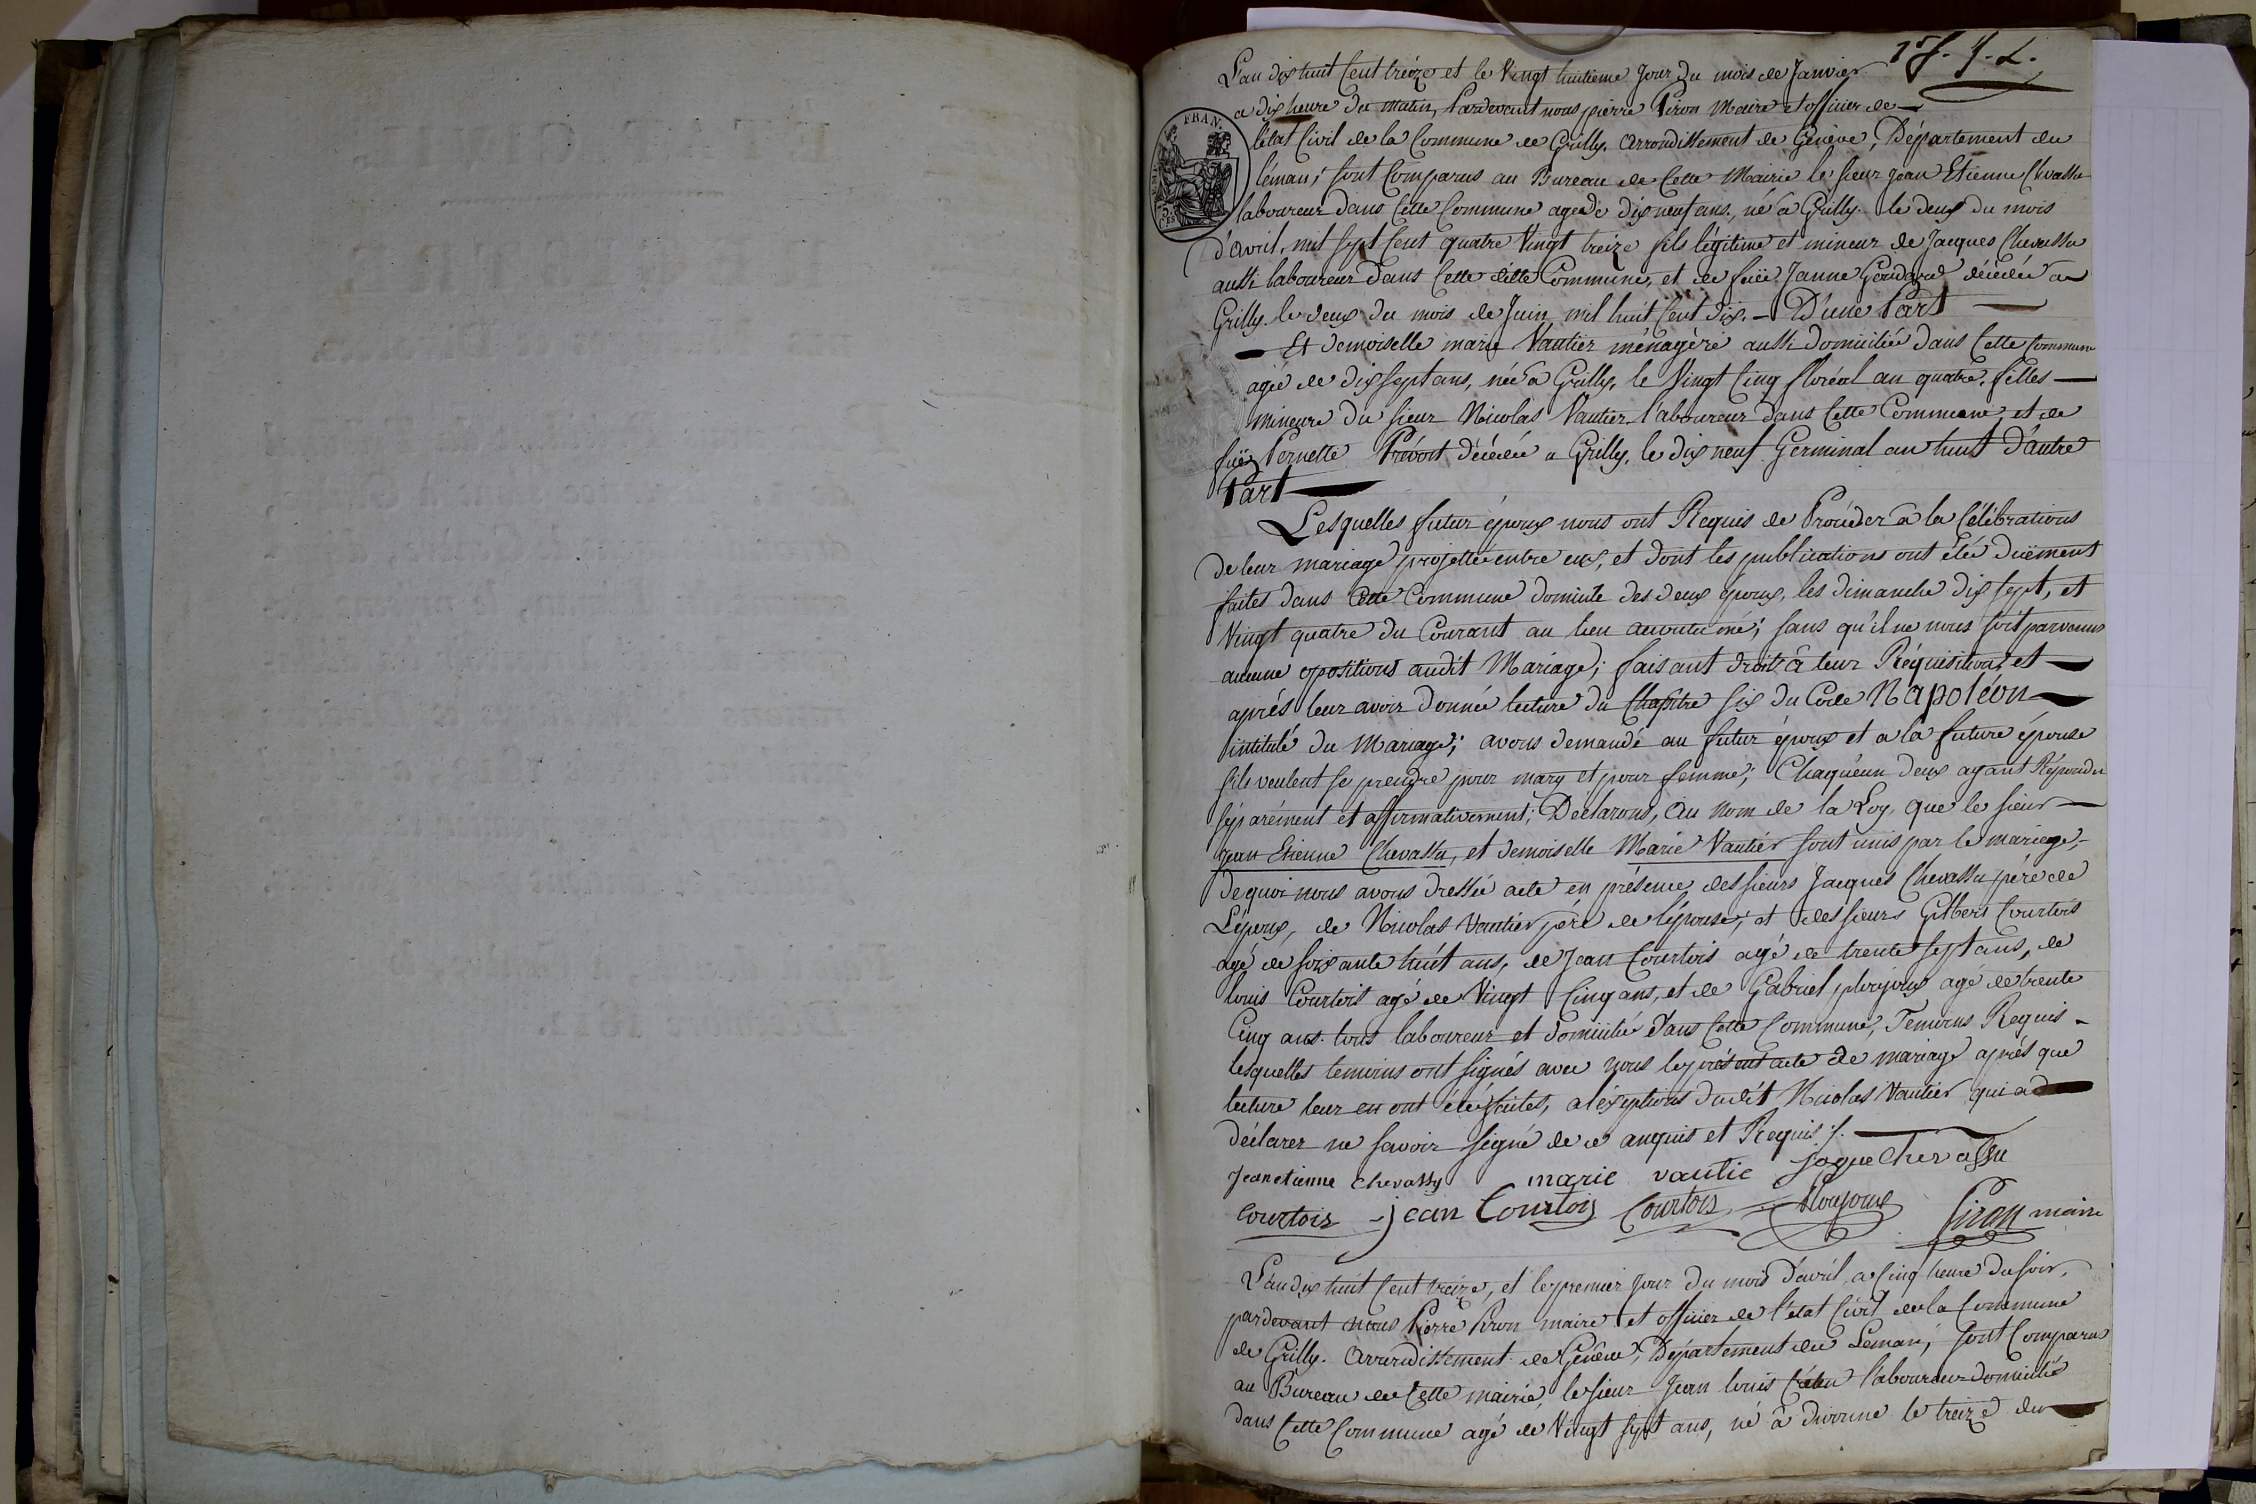 1er f. J. L.
L'an dix huit Cent treize et le Vingt huitieme Jour du mois de Janvier
a dix heure du matin, Pardevant nous pierre Piron Maire et officier de
FRAN.
l'état Civil de la Commune de Grilly. arrondissement de Genève, Département du
léman; sont Comparus au Bureau de Cette Mairie le sieur Jean Etienne Chevassu
laboureur dans Cette Commune agé de dix neuf ans, né à Grilly. le deux du mois
d'avril, mil sept Cent quatre Vingt treize fils légitime et mineur de Jacques Chevassu
aussi laboureur dans Cette ditte Commune, et de feüe Janne décédée a
Grilly. le deux du mois de Juin mil huit Cent dix. - D'une Part
Et demoiselle marie Vautier ménagère aussi domiciliée dans Cette Commune
agée de dix sept ans, née à Grilly, le Vingt Cinq floréal an quatre, filles
mineure du sieur Nicolas Vautier laboureur dans Cette Commune, et de
feüe Pernette Prévost décédée a Grilly, le dix neuf Germinal an huit D'autre
Part
Lesquelles futur époux nous ont Requis de Procéder à la Célébrations
de leur mariage projettée entre eux, et dont les publications ont été duëment
faites dans Cette Commune domicile des deux époux, les dimanche dix sept, et
Vingt quatre du Courant au lieu accoutumé; sans qu'il ne nous soit parvenus
aucune opositions audit Mariage; faisant droit à leur Réquisition, et
après leur avoir donnée lecture du Chapitre six du Code Napoléon
intitulé du Mariage; avons demandé au futur époux et a la future épouse
s'ils veulent se prendre pour mary et pour femme; Chaqu'eun deux ayant Répondu
séparément et affirmativement; Déclarons, au nom de la Loy, que le sieur
Jean Etienne Chevassu, et demoiselle Marie Vautier sont unis par le mariage,
de quoi nous avons dressée acte en présence des sieurs Jacques Chevassu père de
L'époux, de Nicolas Vautier père de l'épouse; et des sieurs Gilbert Courtois
agé de soixante huit ans, de Jean Courtois agé de trente sept ans, de
louis Courtois agé de Vingt Cinq ans, et de Gabriel agé de trente
Cinq ans. tous laboureur et domicilié dans Cette Commune, Temoins Requis
lesquelles temoins ont signés avec nous le présent acte de mariage après que
lecture leur en ont été faites, a l'éxeptions dudit Nicolas Vautier qui a
déclarer ne savoir signé de ce enquis et Requis ./.
Jean etienne Chevassu marie vautie Jaque Chevassu
Courtois jean Courtois Courtois Ploujoux Piron maire
L'an dix huit Cent treize, et le premier Jour du mois d'avril a Cinq heure du soir,
pardevant nous Pierre Piron maire et officier de l'état Civil de la Commune
de Grilly. Arrondissement de Genève, Département du Leman; sont Comparus
au Bureau de Cette mairie, le sieur Jean louis laboureur domicilié
dans Cette Commune agé de Vingt sept ans, né à divonne le treize du